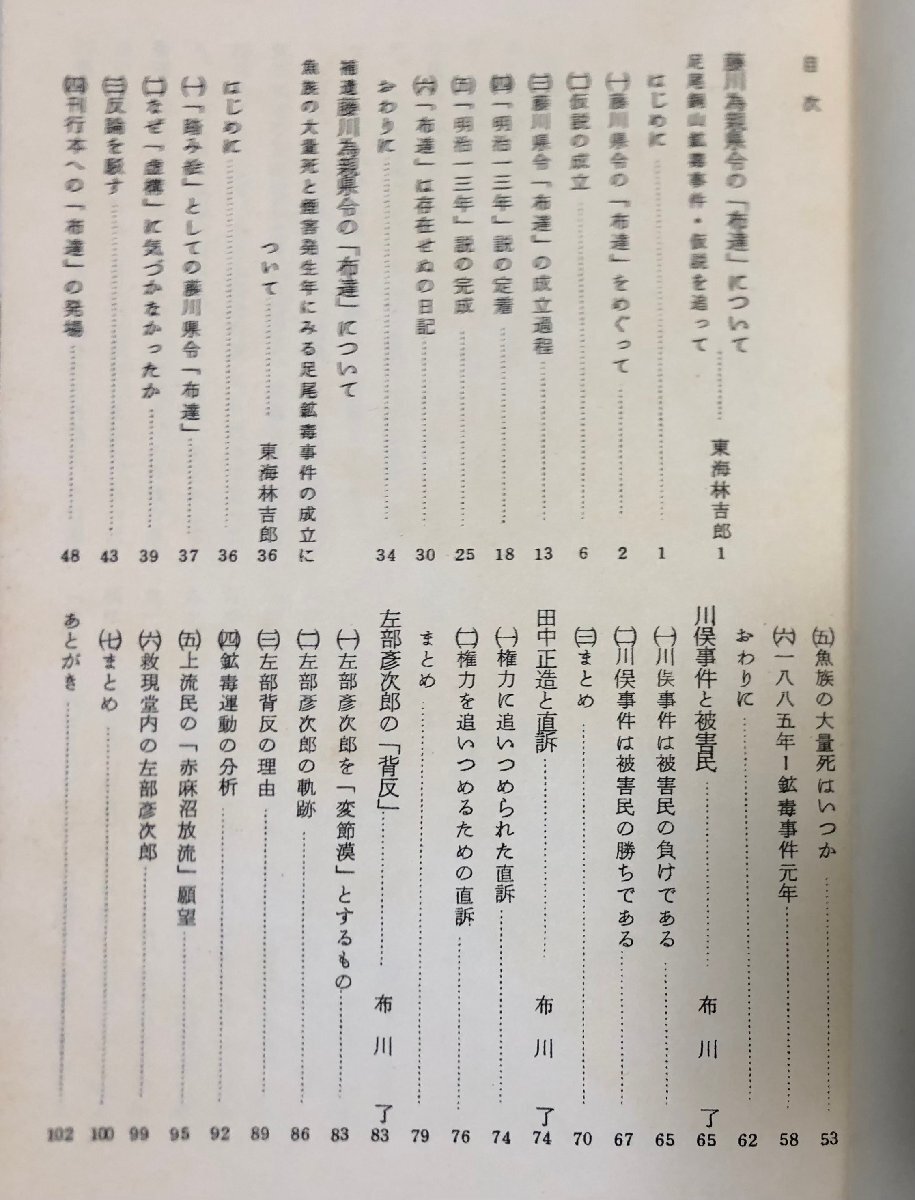 目次
藤川為親県令の「布達」について……東海林吉郎 1
足尾銅山鉱毒事件・仮説を追って
はじめに…… 1
㈠藤川県令の「布達」をめぐって…… 2
㈡仮説の成立…… 6
㈢藤川県令「布達」の成立過程…… 13
㈣「明治一三年」説の定着…… 18
㈤「明治一三年」説の完成…… 25
㈥「布達」は存在せぬの日記…… 30
おわりに…… 34
補遺藤川為親県令の「布達」について
魚族の大量死と煙害発生年にみる足尾鉱毒事件の成立に
ついて……東海林吉郎 36
はじめに…… 36
㈠「踏み絵」としての藤川県令「布達」 37
㈡なぜ「虚構」に気づかなかったか…… 39
㈢反論を駁す…… 43
㈣刊行本への「布達」の登場…… 48
㈤魚族の大量死はいつか…… 53
㈥一八八五年ー鉱毒事件元年…… 58
おわりに…… 62
川俣事件と被害民……布川了 65
㈠川俣事件は被害民の負けである…… 65
㈡川俣事件は被害民の勝ちである…… 67
㈢まとめ…… 70
田中正造と直訴……布川了 74
㈠権力に追いつめられた直訴…… 74
㈡権力を追いつめるための直訴…… 76
まとめ…… 79
左部彦次郎の「背反」……布川了 83
㈠左部彦次郎を「変節漢」とするもの…… 83
㈡左部彦次郎の軌跡…… 86
㈢左部背反の理由…… 89
㈣鉱毒運動の分析…… 92
㈤上流民の「赤麻沼放流」願望…… 95
㈥救現堂内の左部彦次郎…… 99
㈦まとめ…… 100
あとがき…… 102